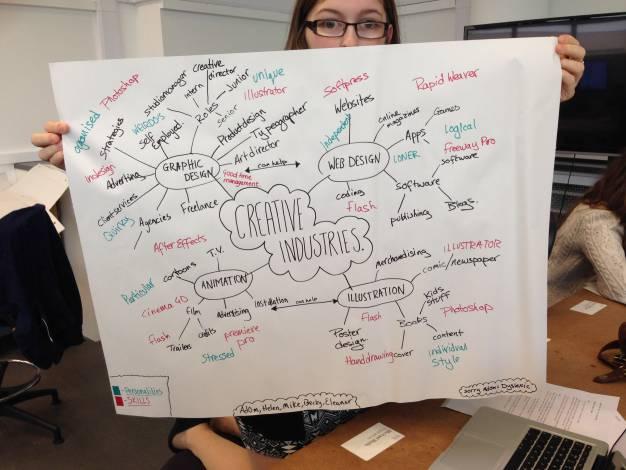 organised
Photoshop
Strategies
Indesign
Advertising
Clientservices
Quirky
Agencies
Freelance
WEIRDYS
Self
Employed.
Studiomanager
intern
creative
director
Roles
Junior
Senior
unique
illustrator
Productdesign
Typeographer
Art director
GRAPHIC
DESIGN
good time
management
can help
Softpress
Websites
Independent
WEB DESIGN
online
magazines
Games
Apps
LONER
Rapid Weaver
Logical
Freeway Pro
software
Software
publishing
Blogs.
coding
flash
CREATIVE
INDUSTRIES.
After Effects
T.V.
cartoons
Particular
ANIMATION
Cinema 4D
film
flash
Trailers
adverts
Advertising
premiere
pro
Stressed
installation
can help
ILLUSTRATION
merchandising
ILLUSTRATOR
comic/newspaper
Kids
Stuff
Photoshop
Books
content
cover
individual
Style
Flash
Poster
design.
Handdrawing
-Personalities
-SKILLS
Adam, Helen, Mike, Becky, Eleanor
Sorry Naomi Dyslexic